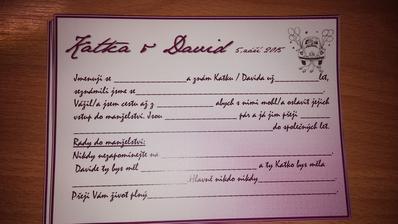 Katka & David 5. září 2015
Jmenuji se ______ a znám Katku / Davida už ______ let,
seznámili jsme se ______.
Vážil/a jsem cestu až z ______ abych s nimi mohl/a oslavit jejich
vstup do manželství. Jsou ______ pár a já jim přeji ______
______ do společných let.
Rady do manželství:
Nikdy nezapomínejte na ______
Davide ty bys měl ______ a ty Katko bys měla
______. Hlavně nikdo nikdy ______.
Přeji Vám život plný ______.